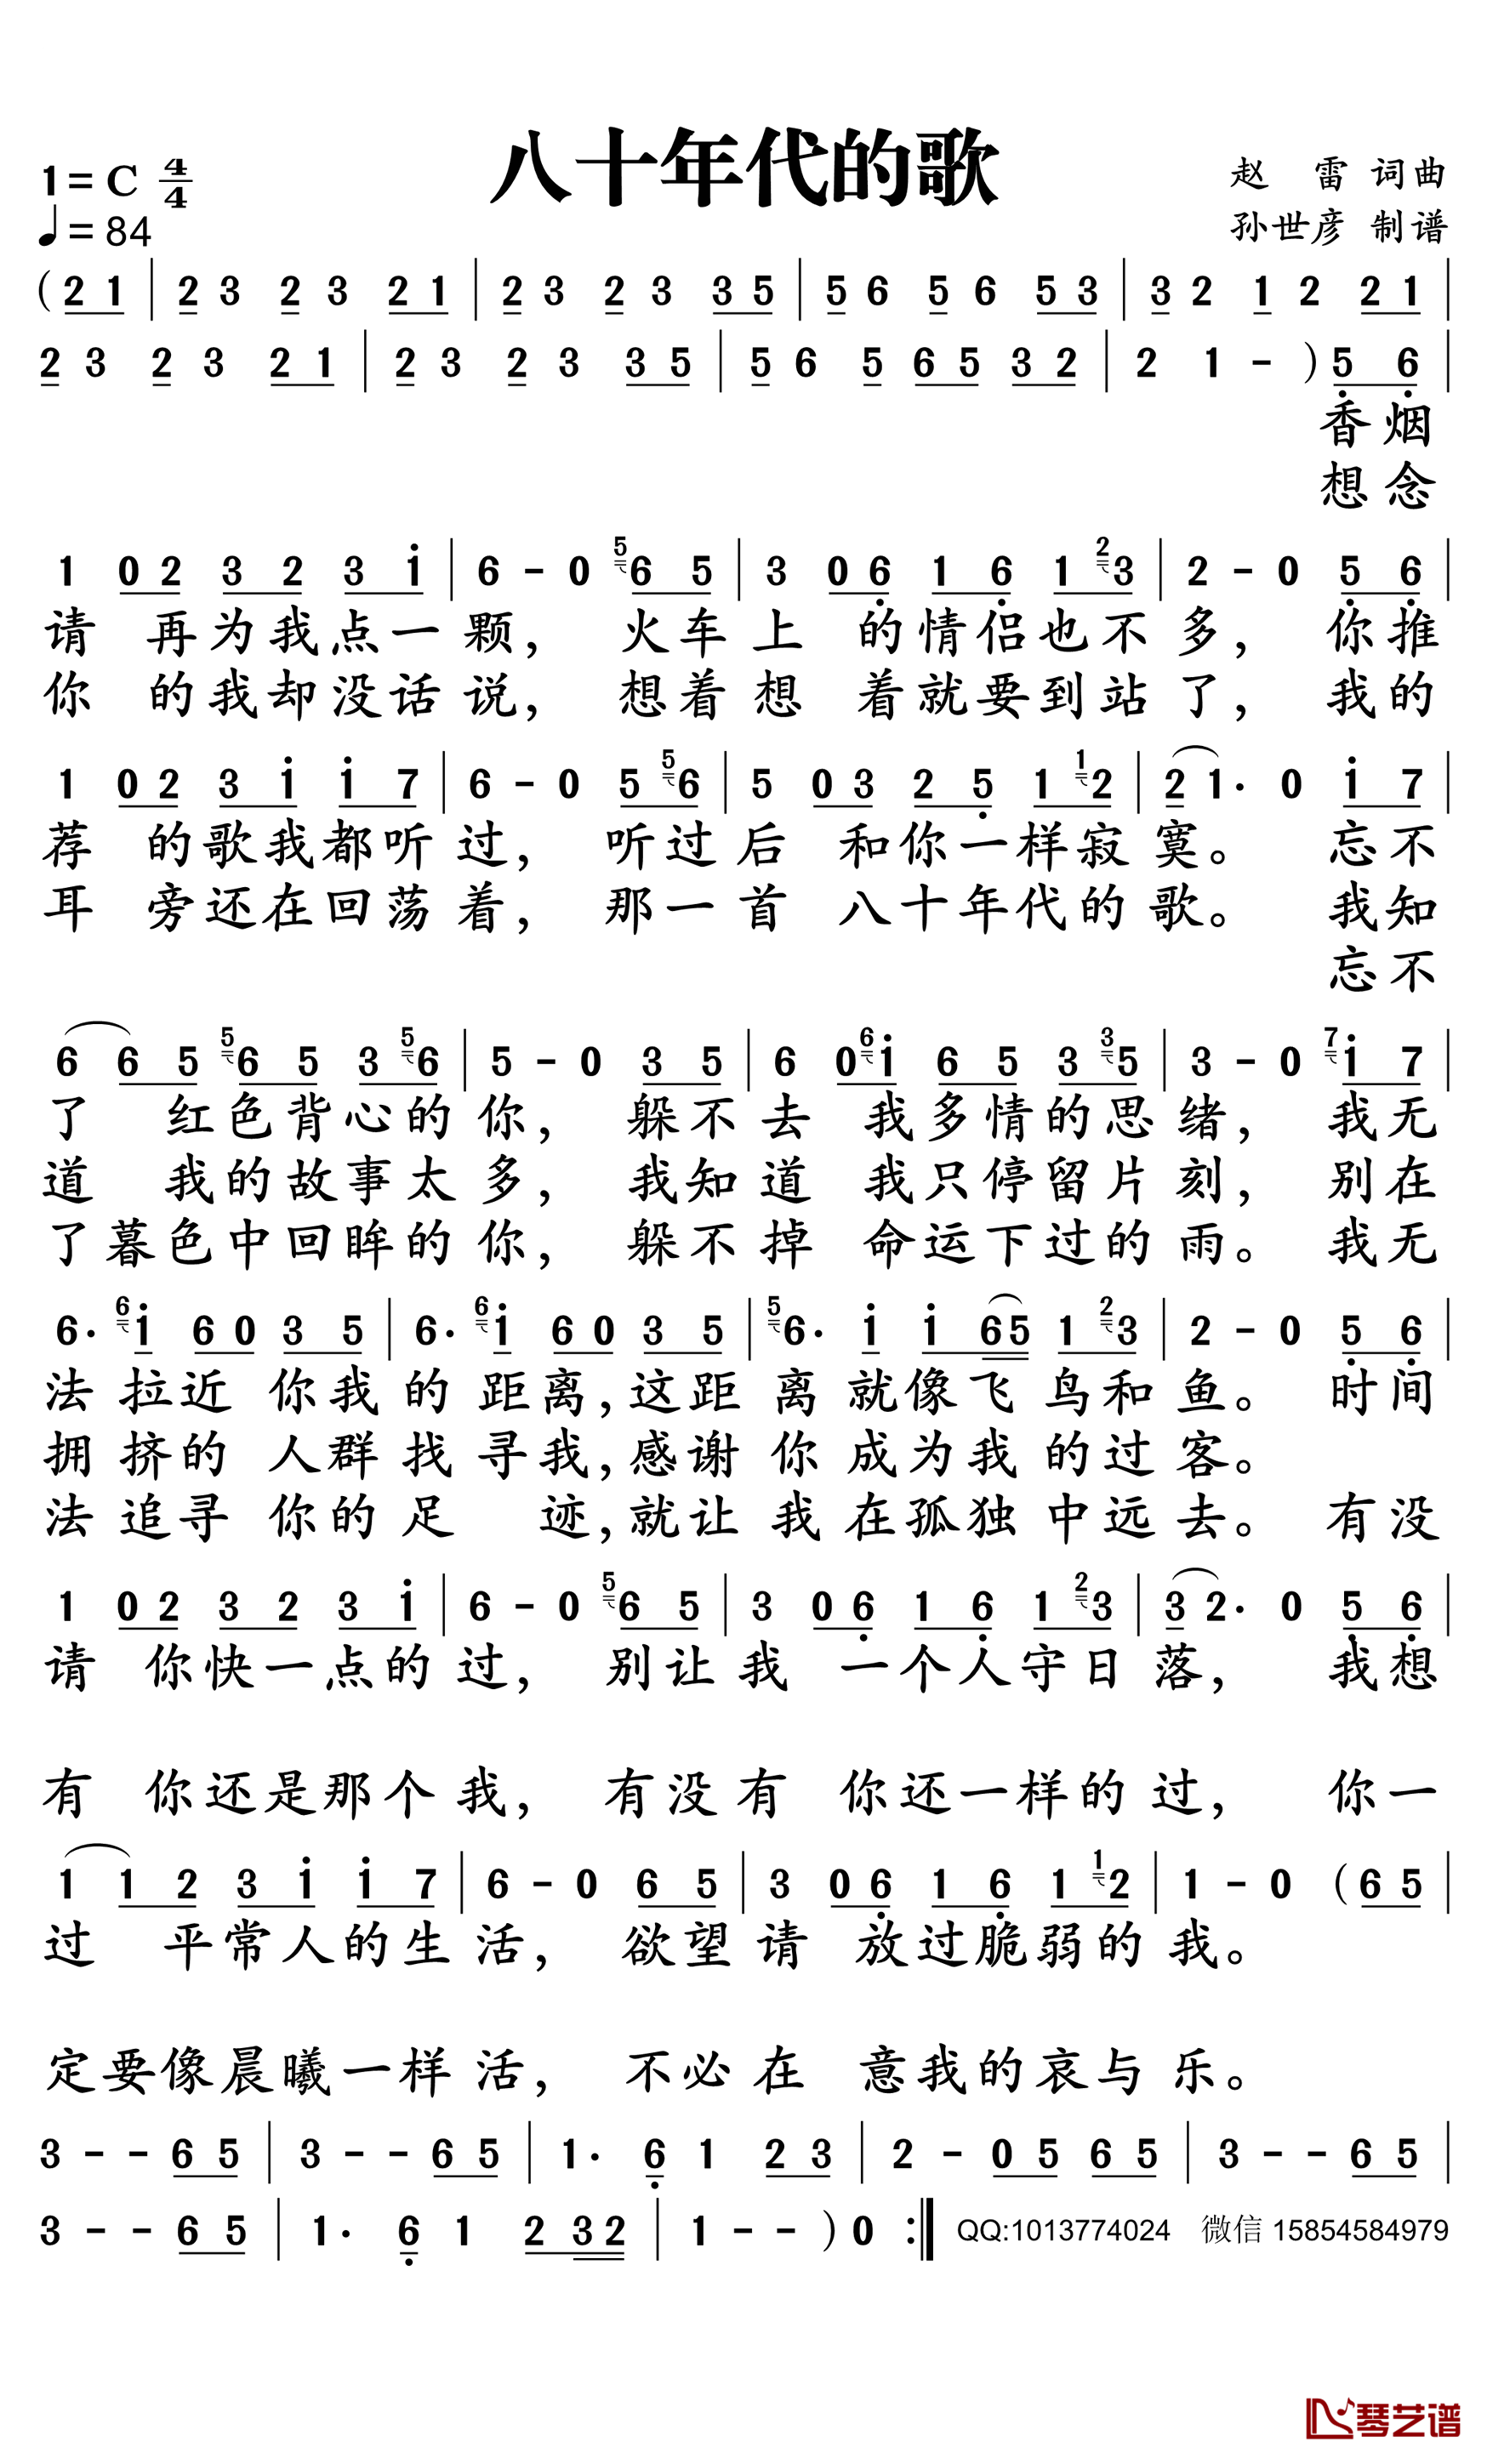 八十年代的歌
1=C 4/4
赵 雷 词曲
♩=84
孙世彦 制谱
(2 1 | 2 3 2 3 2 1 | 2 3 2 3 3 5 | 5 6 5 6 5 3 | 3 2 1 2 2 1 |
2 3 2 3 2 1 | 2 3 2 3 3 5 | 5 6 5 6 5 3 2 | 2 1 - ) 5 6 |
香烟
想念
1 0 2 3 2 3 i | 6 - 0 5 6 5 | 3 0 6 1 6 1 2 3 | 2 - 0 5 6 |
请 再为我点一颗, 火车上 的情侣也不多, 你推
你 的我却没话说, 想着想 着就要到站了, 我的
1 0 2 3 i i 7 | 6 - 0 5 5 6 | 5 0 3 2 5 1 1 2 | 2 1· 0 i 7 |
荐 的歌我都听过, 听过后 和你一样寂寞。 忘不
耳 旁还在回荡着, 那一首 八十年代的歌。 我知
忘不
6 6 5 5 6 5 3 5 6 | 5 - 0 3 5 | 6 0 6 i 6 5 3 3 5 | 3 - 0 7 i 7 |
了 红色背心的你, 躲不去 我多情的思绪, 我无
道 我的故事太多, 我知道 我只停留片刻, 别在
了暮色中回眸的你, 躲不掉 命运下过的雨。 我无
6· 6 i 6 0 3 5 | 6· 6 i 6 0 3 5 | 5 6· i i 6 5 1 2 3 | 2 - 0 5 6 |
法 拉近 你我 的 距离,这距 离 就像飞 鸟和鱼。 时间
拥 挤的 人群 找 寻我,感谢 你 成为我 的过客。
法 追寻 你的 足 迹,就让 我 在孤独 中远去。 有没
1 0 2 3 2 3 i | 6 - 0 5 6 5 | 3 0 6 1 6 1 2 3 | 3 2· 0 5 6 |
请 你快一点的过, 别让我 一个人守日落, 我想
有 你还是那个我, 有没有 你还一样的过, 你一
1 1 2 3 i i 7 | 6 - 0 6 5 | 3 0 6 1 6 1 1 2 | 1 - 0 (6 5 |
过 平常人的生活, 欲望请 放过脆弱的我。
定要像晨曦一样活, 不必在 意我的哀与乐。
3 - - 6 5 | 3 - - 6 5 | 1· 6 1 2 3 | 2 - 0 5 6 5 | 3 - - 6 5 |
3 - - 6 5 | 1· 6 1 2 3 2 | 1 - - ) 0 :‖ QQ:1013774024 微信 15854584979
琴艺谱